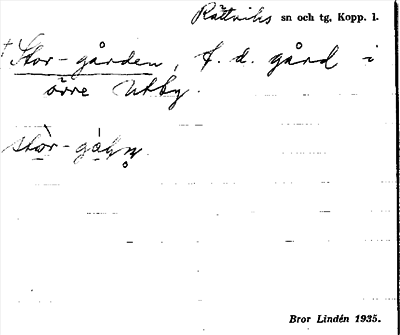 Rättviks sn och tg, Kopp. l.
† Stor-gården, f. d. gård i
övre Utby.
stòr-gàḷn̥.
Bror Lindén 1935.